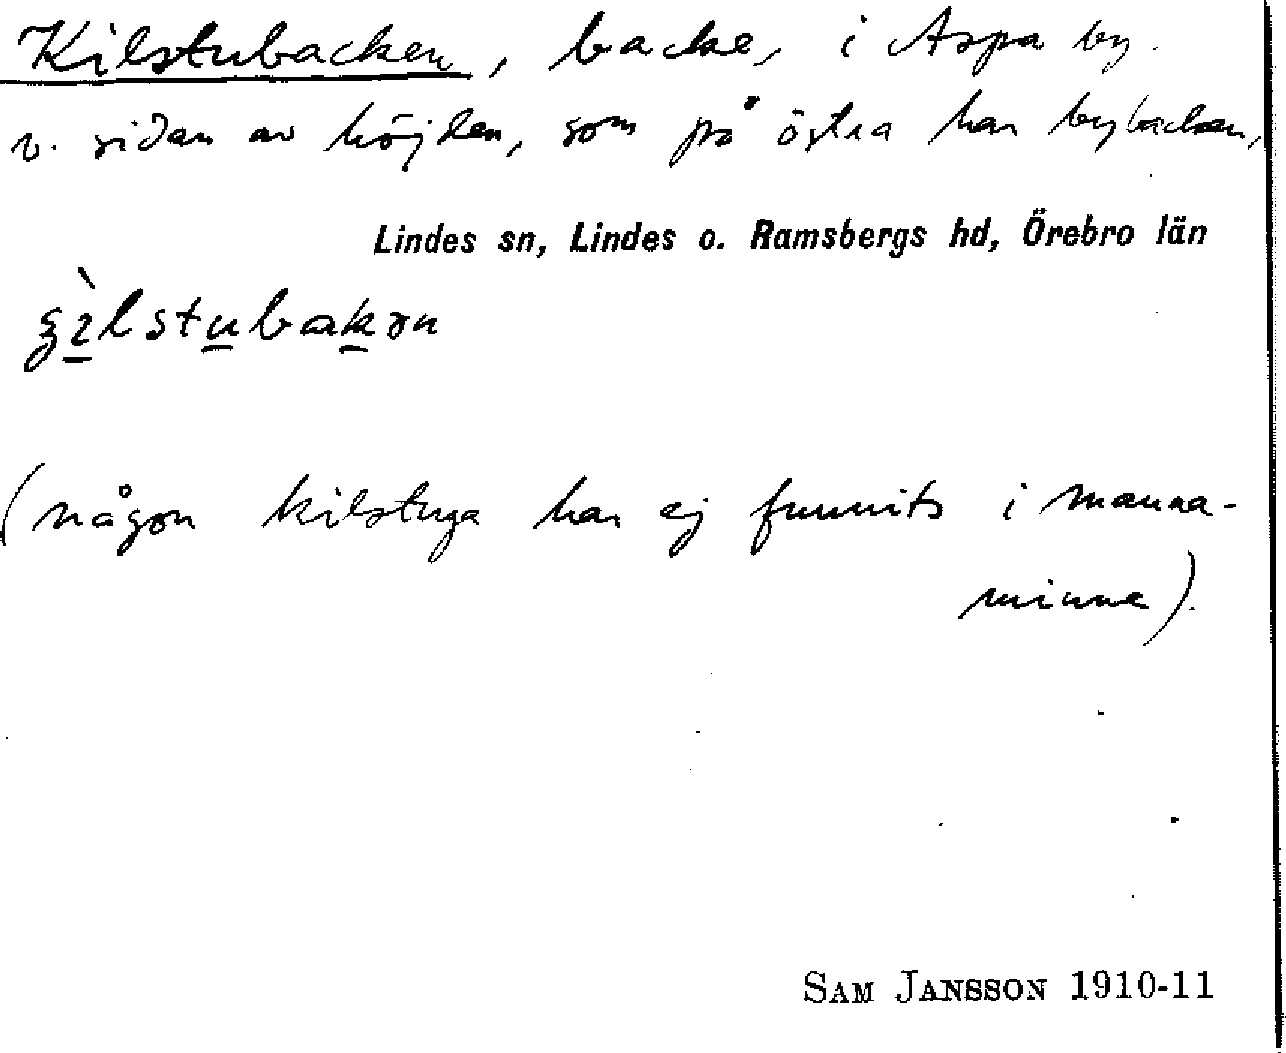 Kilstubacken, backe, i Aspa by.
v. sidan av höjden, som på östra har bybacken,
Lindes sn, Lindes o. Ramsbergs hd, Örebro län
ʒìlstubakən
(någon kilstuga har ej funnits i manna-
minne).
SAM JANSSON 1910-11